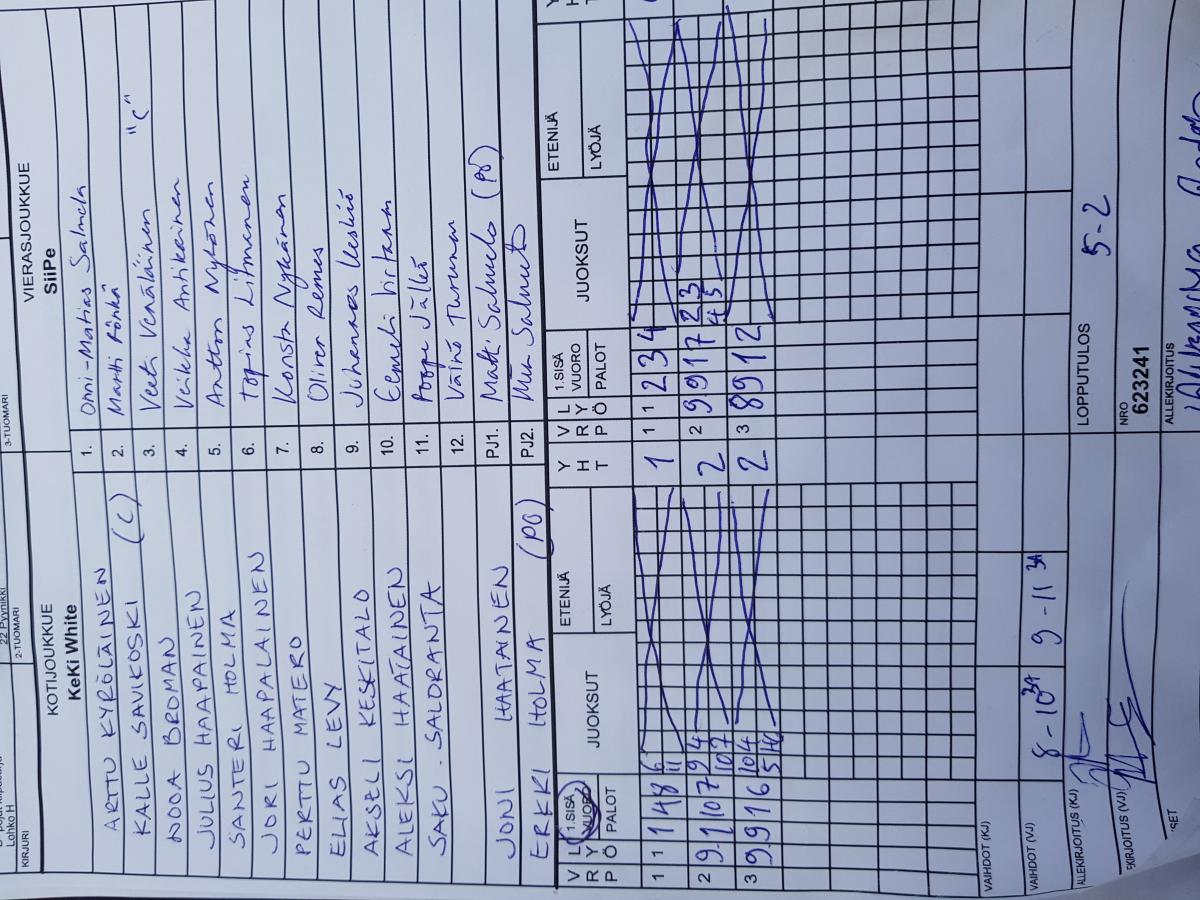 22 Pyynikki
Lohko H
KIRJURI
2-TUOMARI
3-TUOMARI
KOTIJOUKKUE
VIERASJOUKKUE
KeKi White
SiiPe
ARTTU KYRÖLÄINEN 1. Onni-Matias Salmela
KALLE SAVIKOSKI (C) 2. Martti Rönkä
NOOA BROMAN 3. Veeti Venäläinen "C"
JULIUS HAAPAINEN 4. Veikka Antikainen
SANTERI HOLMA 5. Antton Nykänen
JORI HAAPALAINEN 6. Topias Litmanen
PERTTU MATERO 7. Konsta Nykänen
ELIAS LEVY 8. Oliver Remes
AKSELI KESKITALO 9. Juhannes Keskiö
ALEKSI HAATAINEN 10. Eemeli Virtanen
SAKU SALORANTA 11. Roope Jälkö
12. Väinö Turunen
JONI HAATAINEN PJ1. Matti Salmela (PÖ)
ERKKI HOLMA (PÖ) PJ2.
V R P L Y Ö 1.SISÄ VUORO PALOT JUOKSUT ETENIJÄ LYÖJÄ Y H T V R P L Y Ö 1.SISÄ VUORO PALOT JUOKSUT ETENIJÄ LYÖJÄ Y H T
1 1 1 4 8 6 1 1 1 2 3 4
11
2 9 1 10 7 9 4 2 2 9 9 1 7 2 3
10 7 4 5
3 9 9 1 6 10 4 2 3 8 9 1 2
VAIHDOT (KJ)
VAIHDOT (VJ) 8-10 3A 9-11 3A
ALLEKIRJOITUS (KJ) LOPPUTULOS 5-2
EKIRJOITUS (VJ) NRO
623241
ALLEKIRJOITUS